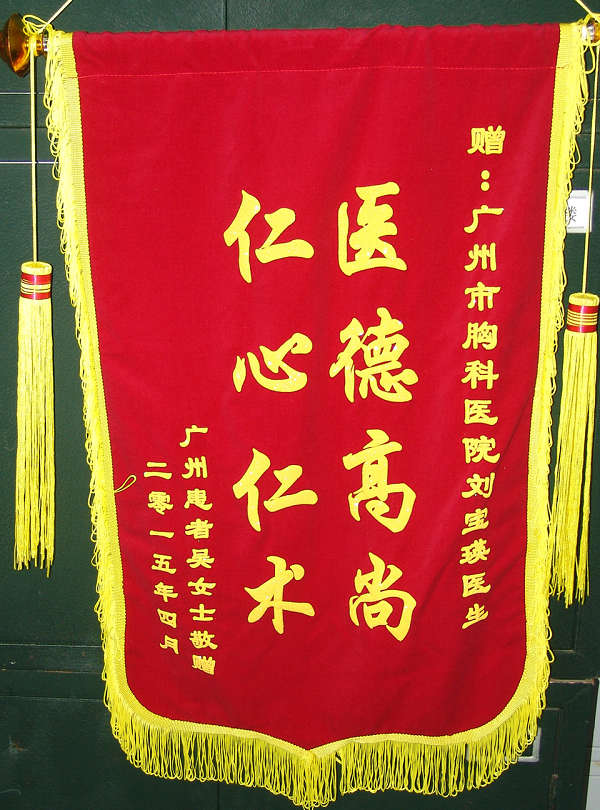 赠：广州市胸科医院刘宝瑛医生
医德高尚
仁心仁术
广州患者吴女士敬赠
二零一五年四月